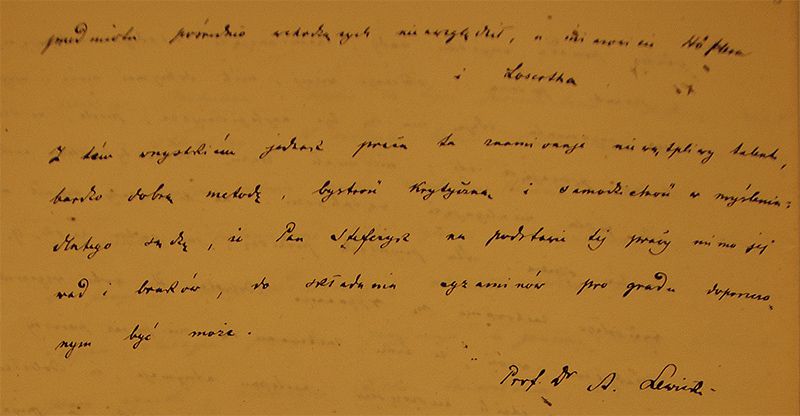 przedmiotu pośrednio wchodzących nie uwzględnił, a mianowicie Höflera
i Losertha
Z tém wszystkiém jednak praca ta znamionuje niewątpliwy talent,
bardzo dobrą metodę, bystrość krytyczną i samodzielność w myśleniu;
dlatego sądzę, iż Pan Stefczyk na podstawie tej pracy mimo jej
wad i braków, do składania egzaminów pro gradu dopuszczo-
nym być może.
Prof. Dr A. Lewicki